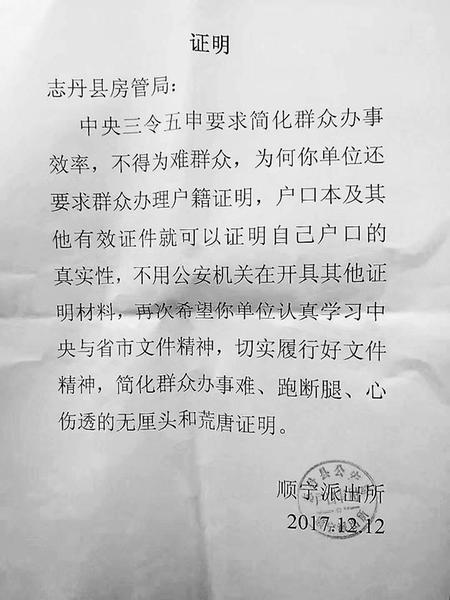 证明
志丹县房管局：
中央三令五申要求简化群众办事
效率，不得为难群众，为何你单位还
要求群众办理户籍证明，户口本及其
他有效证件就可以证明自己户口的
真实性，不用公安机关在开具其他证
明材料，再次希望你单位认真学习中
央与省市文件精神，切实履行好文件
精神，简化群众办事难、跑断腿、心
伤透的无厘头和荒唐证明。
县公安
顺宁派出所
2017.12.12